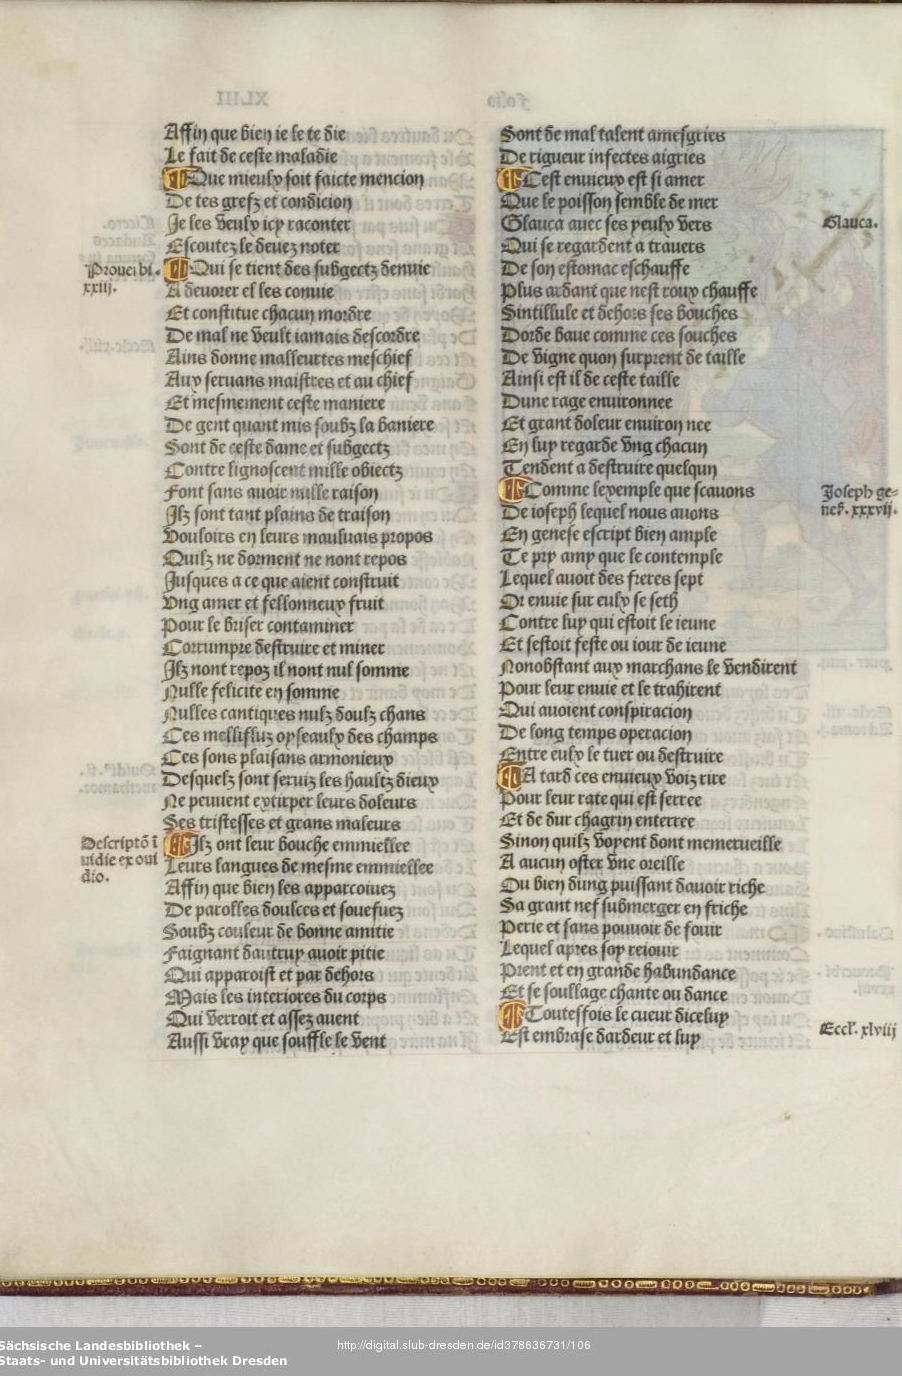 Affin que bien ie le te die
Le fait de ceste maladie
¶ Que mieulx soit faicte mencion
De tes grefz et condicion
Je les veulx icy raconter
Escoutez le devez noter
Proverbi.
xxiij.
¶ Qui se tient des subgectz denuie
A devorer el les conuie
Et constitue chacun mordre
De mal ne veult iamais descordre
Ains donne malleurtes meschief
Aux seruans maistres et au chief
Et mesmement ceste maniere
De gent quant mis soubz la baniere
Sont de ceste dame et subgectz
Contre lignoscent mille obiectz
Font sans auoir nulle raison
Jlz sont tant plains de traison
Vouloirs en leurs mauluais propos
Quilz ne dorment ne nont repos
Jusques a ce que aient construit
Vng amer et fellonneux fruit
Pour le briser contaminer
Corrumpre destruire et miner
Jlz nont repoz il nont nul somme
Nulle felicite en somme
Nulles cantiques nulz doulz chans
Ces mellifluz oyseaulx des champs
Ces sons plaisans armonieux
Desquelz sont seruiz les haultz dieux
Ne peuuent extirper leurs doleurs
Ses tristesses et grans maleurs
Descriptõ ĩ
uidie ex oui
dio.
¶ Jlz ont leur bouche emmiellee
Leurs langues de mesme emmiellee
Affin que bien les apparcoiuez
De parolles doulces et souefuez
Soubz couleur de bonne amitie
Faignant dautruy auoir pitie
Qui apparoist et par dehors
Mais les interiores du corps
Qui verroit et assez auent
Aussi vray que souffle le vent
Sont de mal talent amesgries
De rigueur infectes aigries
¶ Cest enuieux est si amer
Que le poisson semble de mer
Glauca auec ses yeulx vers
Glauca.
Qui se regardent a trauers
De son estomac eschauffe
Plus ardant que nest roux chauffe
Sintillule et dehors ses bouches
Dorde baue comme ces souches
De vigne quon surprent de taille
Ainsi est il de ceste taille
Dune rage enuironnee
Et grant doleur enuiron nee
En luy regarde vng chacun
Tendent a destruire quelqun
¶ Comme lexemple que scauons
Joseph ge-
neß. xxxvij.
De ioseph lequel nous auons
En genese escript bien ample
Te pry amy que le contemple
Lequel auoit des freres sept
Or enuie sur eulx se seth
Contre luy qui estoit le ieune
Et sestoit feste ou iour de ieune
Nonobstant aux marchans le vendirent
Pour leur enuie et le trahirent
Qui auoient conspiracion
De long temps operacion
Entre eulx le tuer ou destruire
¶ A tard ces enuieux voiz rire
Pour leur rate qui est serree
Et de dur chagrin enterree
Sinon quilz voyent dont memerueille
A aucun oster vne oreille
Ou bien dung puissant dauoir riche
Sa grant nef submerger en friche
Perie et sans pouuoir de fouir
Lequel apres soy reiouir
Prent et en grande habundance
Et se soullage chante ou dance
¶ Toutesfois le cueur diceluy
Eccl. xlviij
Est embrase dardeur et luy
Sächsische Landesbibliothek –
Staats- und Universitätsbibliothek Dresden
http://digital.slub-dresden.de/id378636731/106